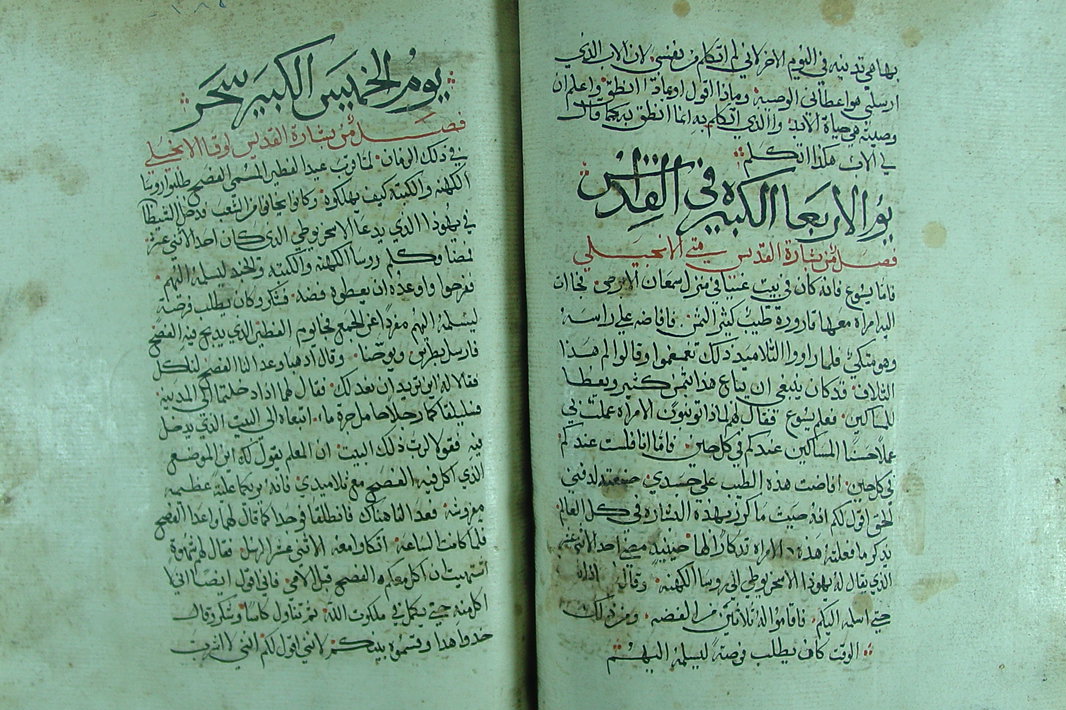 بها هي تدينه في اليوم الاخر لاني لم اتكلم من نفسي لان الاب الذي
ارسلني هو اعطاني الوصية وماذا اقول او بماذا انطق واعلم ان
وصيته هي حياة الابد والذي اتكلم به انما انطق به كما قال
لي الاب هكذا اتكلم
يوم الاربعا الكبيره في القداس
فصل من بشارة القديس متي الانجيلي
فاما يسوع فانه كان في بيت عنيا في منزل سمعان الابرص فجاات
اليه امراه معها قارورة طيب كثير الثمن فافاضه على راسه
وهو متكي فلما راووا التلاميذ ذلك تقمقموا وقالوا لم هذا
التلاف قد كان ينبغي ان يباع هذا بثمن كثير ويعطا
للمساكين فعلم يسوع فقال لهم لماذا توتبون الامراه عملت بي
عملا حسنا المساكين عندكم في كل حين فاما انا فلست عندكم
في كل حين افاضت هذه الطيب على جسدي صنعته لدفني
الحق اقول لكم انه حيث ما كرز بهذه البشاره في كل العالم
يذكر ما فعلته هذه الامراه تذكارا لها حينيذ مضي احد الاثني عشر
الذي يقال له يهوذا الاسخريوطي الى روسا الكهنه وقال
حتي اسلمه اليكم فاقاموا له ثلاثين من الفضه ومن ذلك
الوقت كان يطلب فرصة ليسلمه اليهم
يوم الخميس الكبير سحر
فصل من بشارة القديس لوقا الانجيلي
في ذلك الزمان لما قرب عيد الفطير المسمى الفصح طلبوا روسا
الكهنه والكتبة كيف يهلكوه وكانوا يخافوا من الشعب فدخل الشيطان
في يهوذا الذي يدعا الاسخريوطي الذي كان احد الاثني عشر
فمضا وكلم روسا الكهنه والكتبه والجند ليسلمه اليهم
ففرحوا واوعدوه ان يعطوه فضه فشكر وكان يطلب فرصة
ليسلمه اليهم مفردا عن الجمع فجا يوم الفطير الذي يذبح فيه الفصح
فارسل بطرس ويوحنا وقال اذهبا وعدا لنا الفصح لناكل
فقالا له اين تريد ان نعد لك فقال لهما اذا دخلتما الى المدينة
فسيلقاكما رجلا حامل جرة ماء اتبعاه الى البيت الذي يدخل
فيه فقولا لرب ذلك البيت ان المعلم يقول لك اين الموضع
الذي اكل فيه الفصح مع تلاميذي فانه يريكما علية عظيمه
مفروشه فعدا لنا هناك فانطلقا فوجدا كما قال لهما واعدا الفصح
فلما كانت الساعة اتكا ومعه الاثني عشر الرسل فقال لهم شهوة
اشتهيت ان اكل معكم هذا الفصح قبل الامي فاني اقول ايضا اني لا
اكل منه حتي يكمل في ملكوت الله ثم تناول كاسا وشكر وقال
خذوا هذا وقسموه بينكم لانني اقول لكم انني لا اشرب